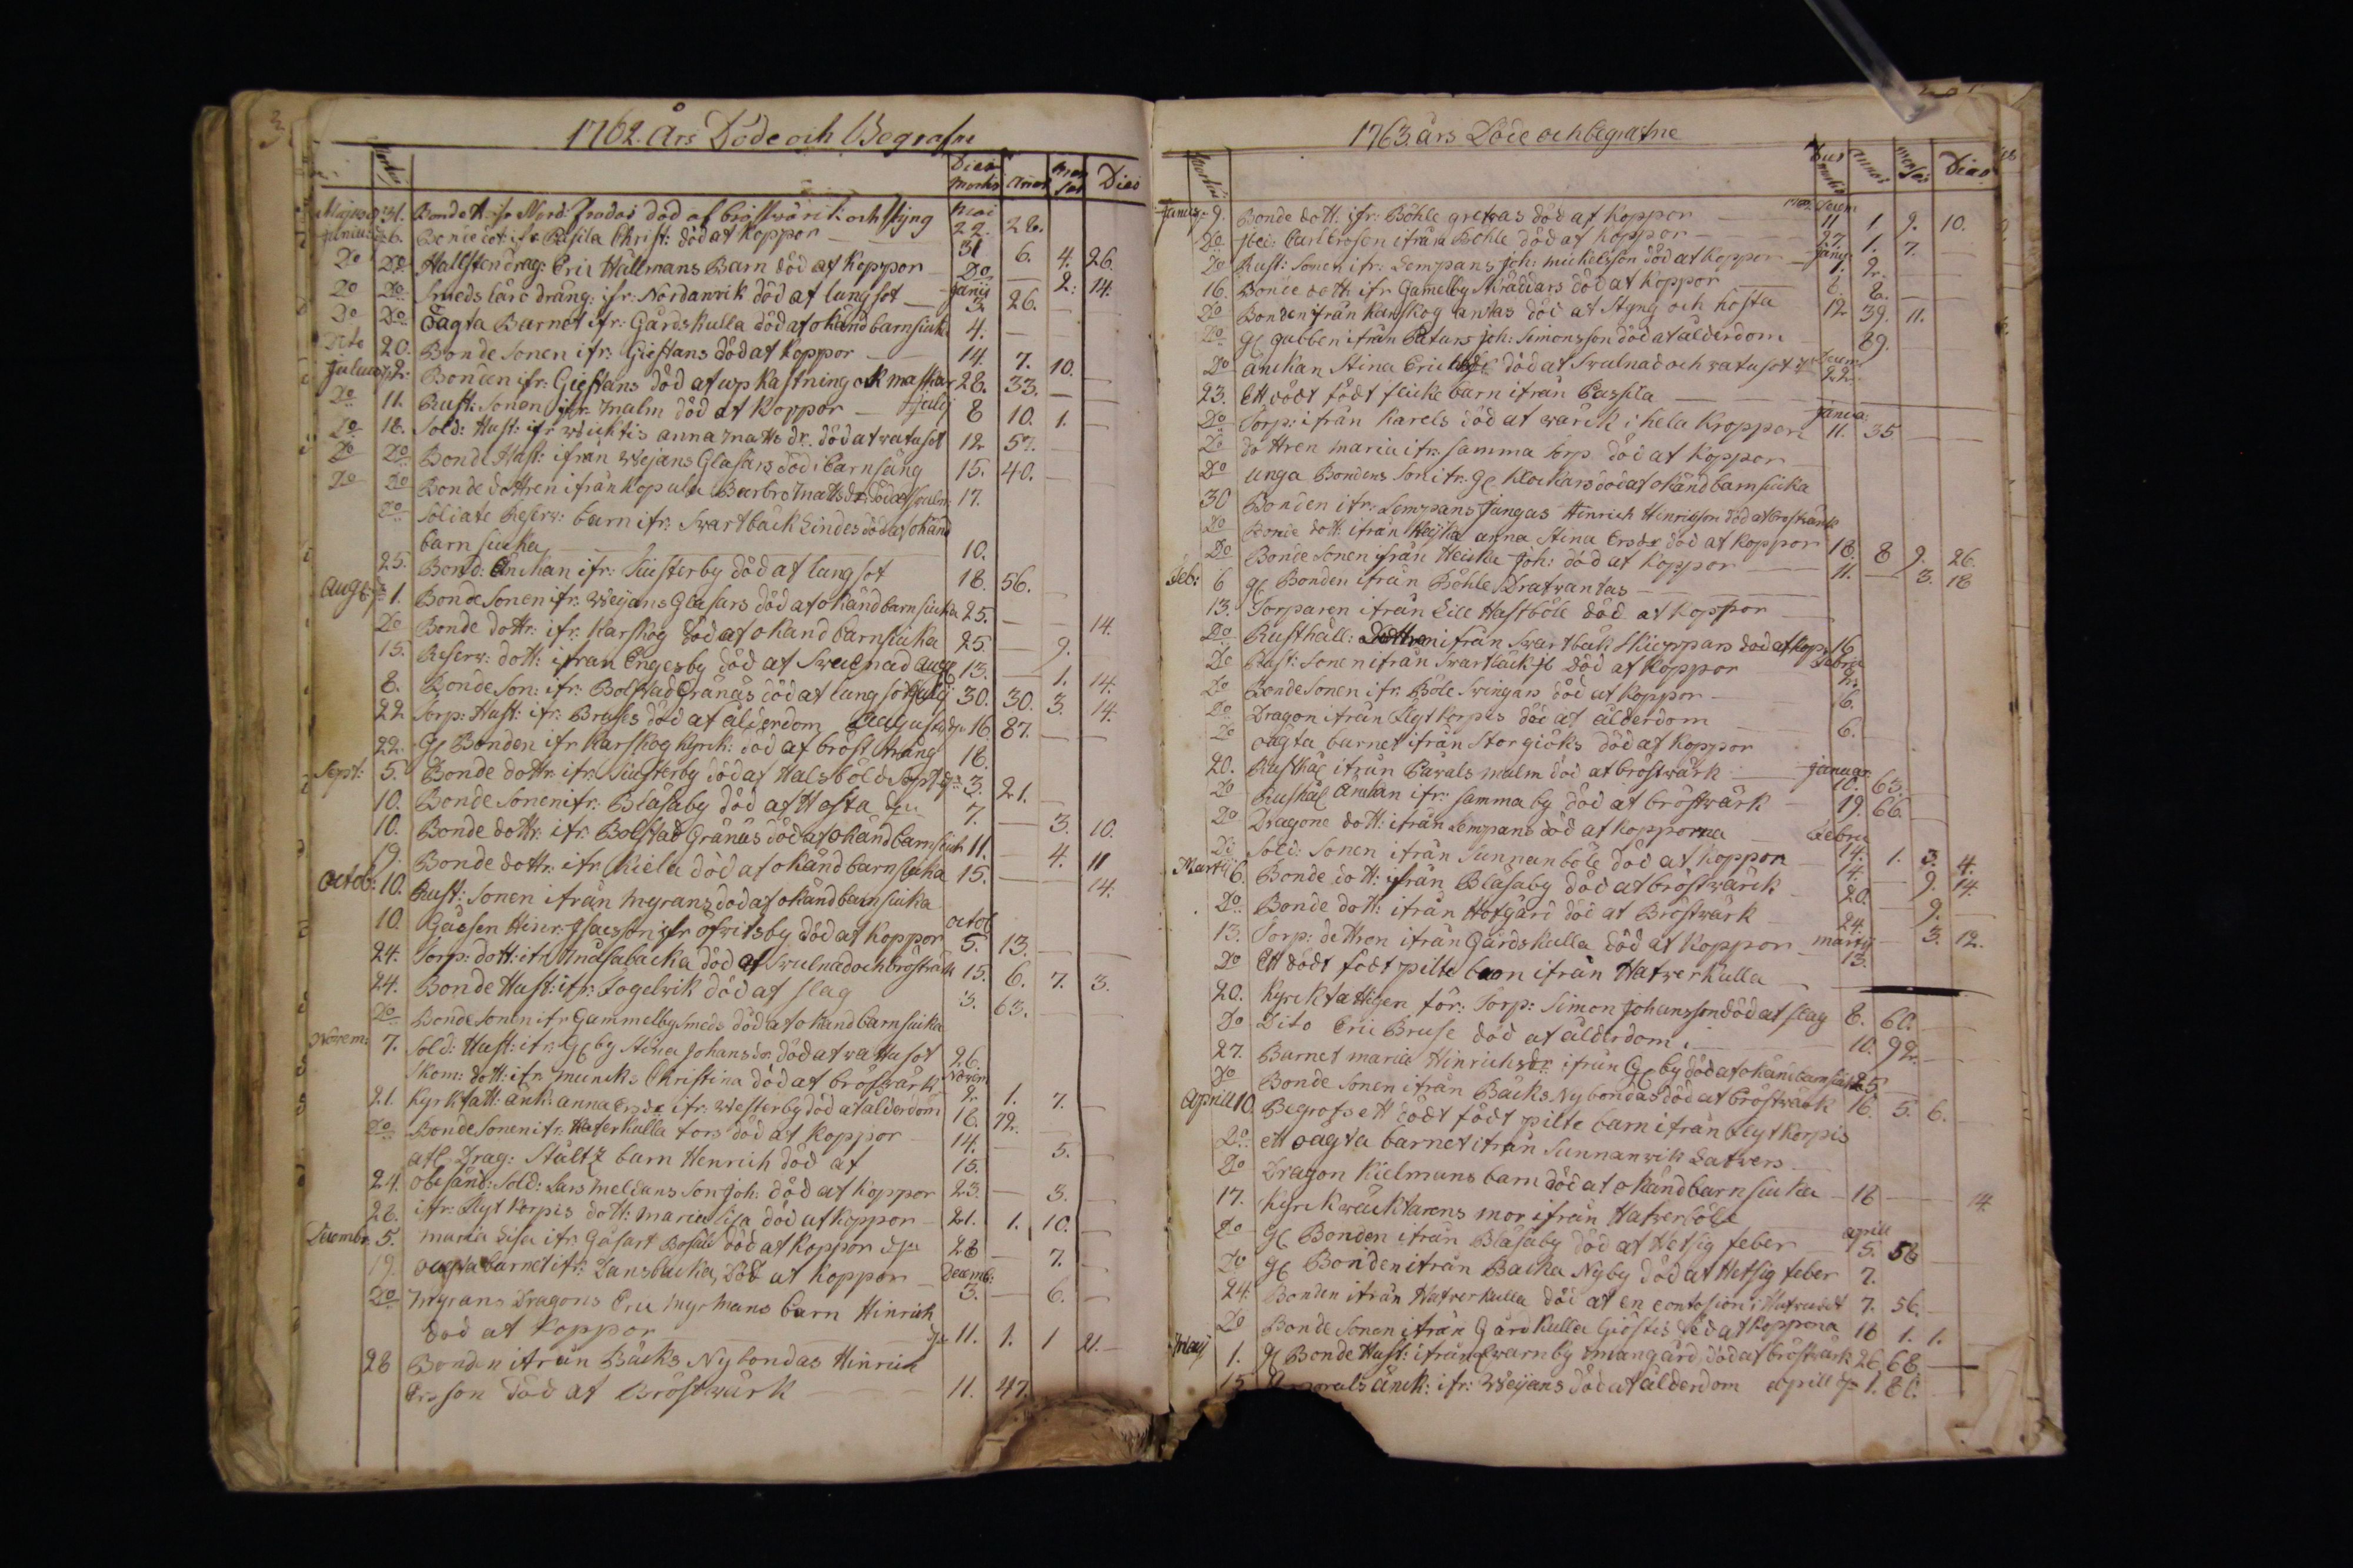 1762. Års Döde och Begrafne
Dies Mortis Annos Menses Dies
Majus 31. Bonde H: ifr Nord: död af bröstwärk: och styng Maj 22. 28.
Junius 6. Bonde dot: ifr Pasila Christ: död af Koppor 31 6. 4. 26.
Do Do Hallsten Drag: Eric Hällmans Barn död af Koppor Do 2. 14.
Do Do Smeds läro dräng: ifr: Nordanwik död af lungsot Junij 3. 26.
Do Do Barnet ifr: Gårdskulla död af okänd barnsiuk 4.
Dito 20. Bonde Sonen ifr: Gieftans död af Koppor 14. 7. 10.
Julius 2. Bonden ifr: Gieftans död af uppkastning ok maskar 28. 33.
Do 11. Rust: Sonen ifr: Malm död af Koppor Julij 8 10. 1.
Do 18. Sold: Hust: ifr anna Matts dr. död af watusot 12 57.
Do Do Bonde Hust: ifrån Weijans Glasars död i Barnsäng 15. 40.
Do Do Bonde dottren ifrån Kopula Barbro Matts dr. död af swulln: 17.
Do Soldate Reserv: barn ifr: Swartbäck Lindes död af okänd
barn siuka 10.
25. Bond: Änckan ifr: Siusterby död af lungsot 18. 56.
Aug: 1. Bonde Sonen ifr: Weijans Glasars död af okänd barnsiuka 25. 14.
Do Bonde dottr: ifr: Karskog död af okänd barnsiuka 25. 9.
15. Reserv: dott: ifrån Engesby död af Swulnad Aug 13. 1. 14.
8. Bonde Son: ifr: Bolstad Gränäs död af lungsot Julij 30. 30. 3. 14.
22 Torp: Hust: ifr: Bruses död af ålderdom Augusti 16. 87.
22. Gl Bonden ifr Karskog Kyrck: död af bröst 18.
Sept: 5. Bonde dottr. ifr: Siusterby död af Halsböld Sept 3. 21.
10. Bonde Sonen ifr: Blåsaby död af Hosta 7. 3. 10.
10. Bonde dottr. ifr: Bolstad Gränäs död af okänd barnsiuk 11. 4. 11
19. Bonde dottr. ifr: Kiela död af okänd barnsiuka 15. 14.
Octob: 10. Rust: Sonen ifrån Myrans död af okänd barnsiuka
10. Gåssen Hinr: Isacsson ifr Öfvitsby död af Koppor Octob 5. 13.
24. Torp: dott: ifr: Knåsabacka död af Swulnad och bröstwärk 15. 6. 7. 3.
24. Bonde Hust: ifr: Fogelwik död af slag 3. 63.
Do Bonde Sonen ifr Gammelby Smeds död af okänd barnsiuka
Novem: 7. Sold: Hust: ifr: Gl by Stina Johansdr. död af wattusot 26.
Skom: dott: ifr Muncks Christina död af bröstwärk Novem 2. 1. 7.
21. Kyrkfatt: änk: anna Ersdr ifr: Westerby död af ålderdom 18. 72.
Do Bonde Sonen ifr: Haferkulla Tors död af Koppor 14. 5.
Drag: Stältz barn Henrich död af 15.
24. Sold: Lars Meldans Son Joh: död af Koppor 23. 3.
28. ifr: Flytkorpis dott: Maria Lisa död af Koppor 21. 1. 10.
Decembr. 5. Maria Lisa ifr: Gåsart Bosäll död af Koppor 28 7.
19. oägta barnet ifr: Lansbacka, död af Koppor Decemb: 3. 6.
Do Myrans Dragons Eric Myrmans barn Hinrich
död af Koppor 11. 1. 1 21.
28 Bonden ifrån Bäcks Nybondas Hinrich
Ersson död af Bröstwärk 11. 47.
1763. års Döde och begrafne
Dies Annos Menses Dies
Janu: 9. Bonde dott: ifr: Böhle gretas död af Koppor Decem 11 1 9. 10.
Do Carl Ersson ifrån Böhle död af Koppor 27. 1. 7.
Do Rust: Sonen ifr: Lempans Joh: Mickelsson död af Koppor Janu: 1. 2.
16. Bonde dott. ifr Gamelby Skräddars död af Koppor 8. 8.
Do Bonden ifrån Karskog antas död af Styng och hosta 12 39. 11.
Do Gl gubben ifrån Peturs Joh: Simonsson död af ålderdom 89.
Do änckan Stina Ericks död af Swulnad och watusot Decem 22.
23. Ett dödt födt flicke barn ifrån Passila
Do Torp: ifrån Karels död af wärck i hela Kroppen Janua. 11. 35
Do dottren Maria ifr: samma torp död af Koppor
Do unga Bondens Son ifr: Gl Klockars död af okänd barnsiuka
30 Bonden ifr: Lempans Jungas Henrich Henricsson död af bröstwärk
Do Bonde dott: ifrån Heiska anna Stina Ersdr död af Koppor 18. 8 9. 26.
Do Bonde Sonen ifrån Heiska Joh: död af Koppor 11. 3. 18
Feb: 6 Gl Bonden ifrån Böhle Dratvantas
13. Torparen ifrån Lill Hastböle död af Koppor
Do Rusthåll: Dottren ifrån Swartbäck Skieppars död af Kop: 16
Do Rust: Sonen ifrån Swartbäck död af Koppor Febru 2.
Do Bonde Sonen ifr: Böle Swingars död af Koppor 6.
Do Dragon ifrån Flytkorpis död af ålderdom
Do oägta barnet ifrån Storgiöks död af Koppor 6.
20. Rusthål ifrån Pavals Malm död af bröstwärk Januar. 18. 63.
Do Rusthål änckan ifr: samma by död af bröstwärk 19. 66.
Do Dragone dott: ifrån Lempans död af Kopporna Febru
Do Sold: Sonen ifrån Sunnanböle död af Koppor 14. 1. 3. 4.
Martij 6. Bonde dott: ifrån Blåsaby död af bröstwärck 14. 9. 14.
Do Bonde dott: ifrån Hofgård död af Bröstwärk 20. 9.
13. Torp: dottren ifrån Gårdskulla död af Koppor Martij 24. 3. 12.
Do Ett dödt födt pilte barn ifrån Hafverkulla 13.
20. Kyrckfattigen för: Torp: Simon Johansson död af slag 8. 60.
Do Dito Eric Bruse död af ålderdom 10. 92.
27. Barnet Maria Hinrichsdr ifrån Gl by död af okänd barnsiuka 25.
Do Bonde Sonen ifrån Bäcks Nybondas död af bröstwärk 16. 5. 6.
Aprill 10. Begrofs ett dödt födt pilte barn ifrån Flytkorpis
Do ett oägta barnet ifrån Sunnanwik
Do Dragon Kielmans barn död af okänd barnsiuka 18 14.
17. Kyrckwäcktarens mor ifrån Hafverböle
Do Gl Bonden ifrån Blåsaby död af Hetsig feber Aprill 5. 58
Do Gl Bonden ifrån Backa Nyby död af Hetsig feber 7.
24. Bonden ifrån Hafverkulla död af en contosion i Hufvudet 7. 56.
Do Bonde Sonen ifrån Gårdkulla Giöstis död af Kopporna 18 1. 1.
Maij 1. Gl Bonde Hust: ifrån Qwarnby Smangård, död af bröstwärk 26 68
15. änck: ifr: Weijans död af ålderdom Aprill 1. 80.